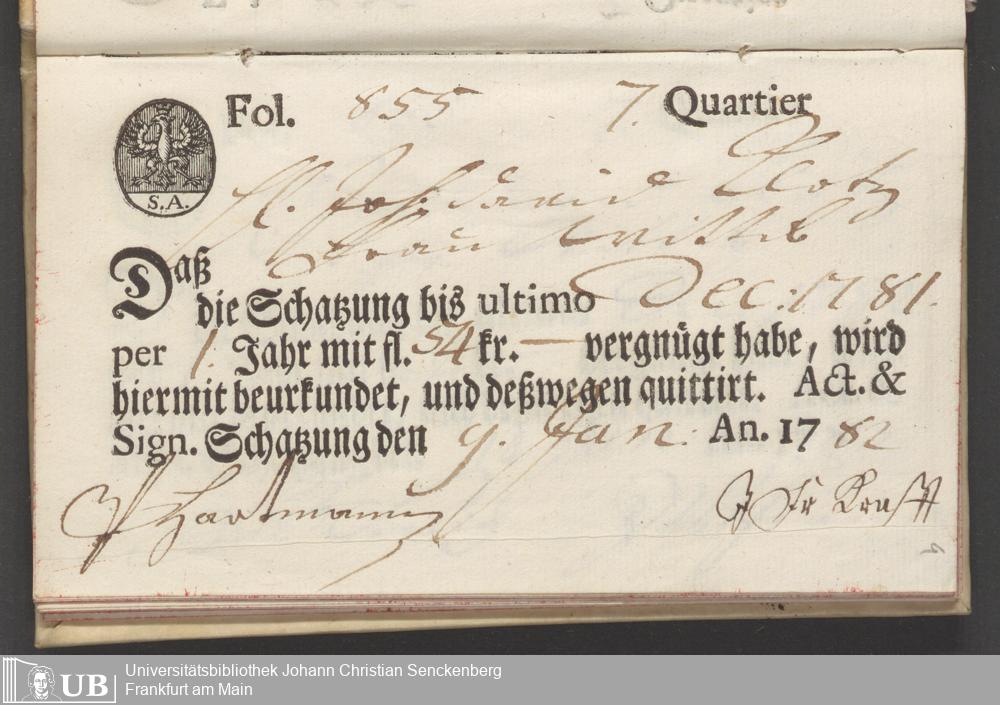 Fol. 855 7. Quartier
S. A.
Joh. David Clotz
Frau Wittib
Daß
die Schatzung bis ultimo Dec: 1781.
per 1. Jahr mit fl. 54 kr. — vergnügt habe, wird
hiermit beurkundet, und deßwegen quittirt. Act. &
Sign. Schatzung den 9. Jan: An. 1782
Hartmann
Krafft
UB
Universitätsbibliothek Johann Christian Senckenberg
Frankfurt am Main